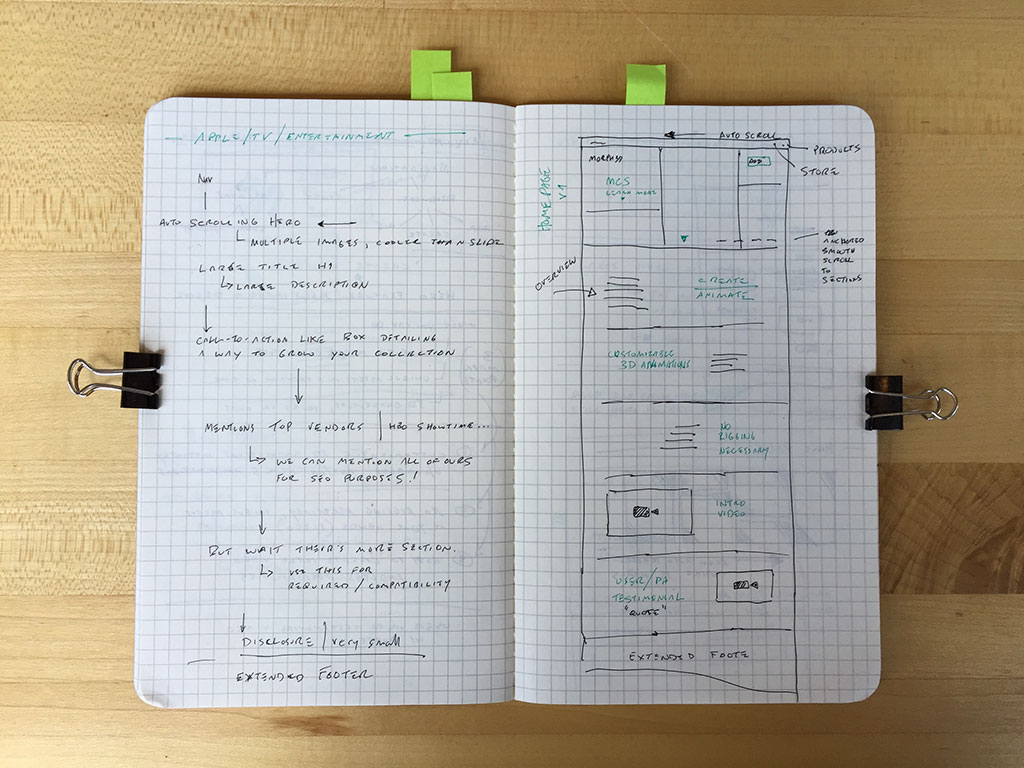 APPLE/TV/ENTERTAINMENT
NAV
AUTO SCROLLING HERO
MULTIPLE IMAGES, COOLER THAN SLIDE
LARGE TITLE H1
LARGE DESCRIPTION
CALL-TO-ACTION LIKE BOX DETAILING
A WAY TO GROW YOUR COLLECTION
MENTIONS TOP VENDORS | HBO SHOWTIME...
WE CAN MENTION ALL OF OURS
FOR SEO PURPOSES!
BUT WAIT THEIR'S MORE SECTION.
USE THIS FOR
REQUIRED/COMPATIBILITY
DISCLOSURE / very small
EXTENDED FOOTER
HOME PAGE
V1
AUTO SCROLL
PRODUCTS
STORE
MCS
LEARN MORE
ANCHORED
SMOOTH
SCROLL
TO
SECTIONS
OVERVIEW
CREATE
ANIMATE
CUSTOMIZABLE
3D ANIMATIONS
NO
RIGGING
NECESSARY
INTRO
VIDEO
USER/PA
TESTIMONIAL
"QUOTE"
EXTENDED FOOTE